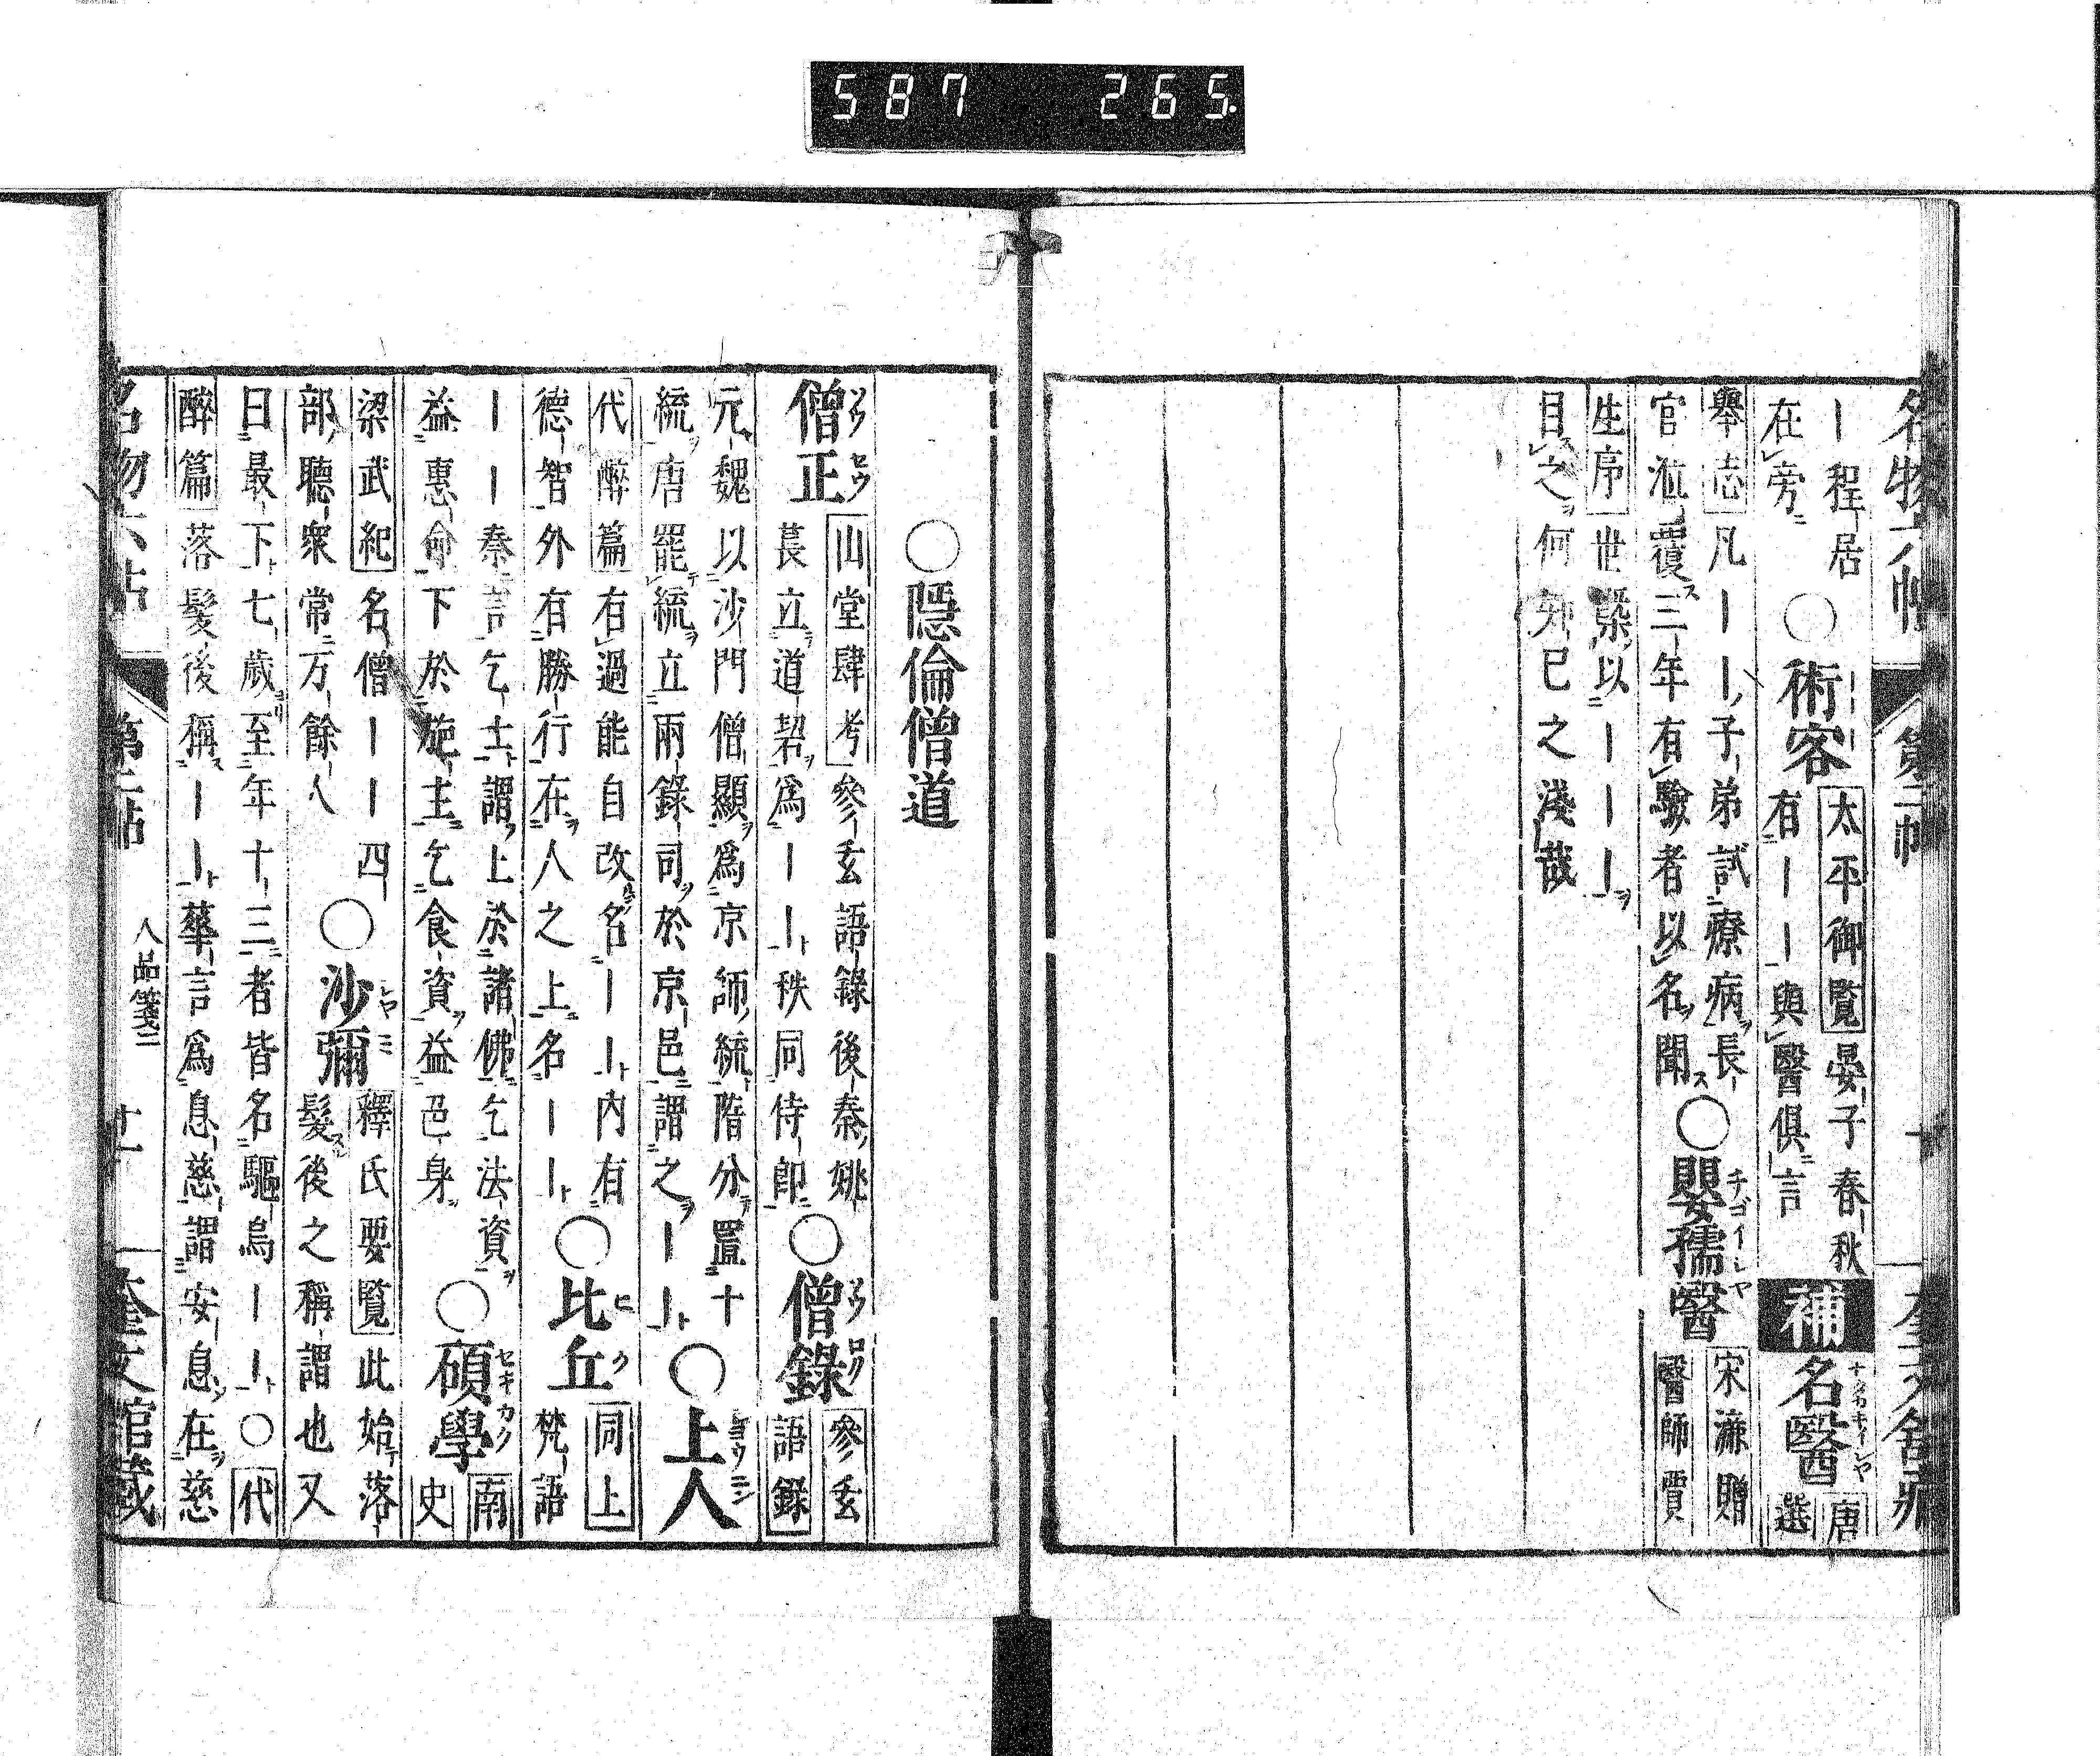 587 265.
名物六帖 第二帖 十 奎文舘藏
｜程居
在旁
○術客 太平御覽 晏子春秋
有｜｜與醫俱言
補 名醫 唐
選
舉志 凡｜｜子弟試療病長
官涖覆三年有驗者以名聞
○嬰孺醫 宋濂贈
醫師賈
チゴイシヤ
生序 世槩以｜｜｜
目之何知已之淺哉
○隱倫僧道
僧正 山堂肆考 參玄語錄後秦姚
萇立道䂮爲｜｜秩同侍郎
ソウセウ
○僧錄 參玄
語錄
ソウロク
元魏以沙門僧顯爲京師統隋分置十
統唐罷統立兩錄司於京邑謂之｜｜
○上人
シヨウニン
代醉篇 右過能自改名｜｜内有
德智外有勝行在人之上名｜｜
○比丘 同上
梵語
ヒク
｜｜秦言乞士謂上於諸佛乞法資
益惠命下於施主乞食資益色身
○碩學 南
史
セキガク
梁武紀 名僧｜｜四
部聽衆常万餘人
○沙彌 釋氏要覽 此始落
髮後之稱謂也又
シヤミ
曰最下七歲至年十三者皆名驅烏｜｜○代
醉篇 落髮後稱｜｜華言爲息慈謂安息在慈
名物六帖 第二帖 人品箋二 十一 奎文舘藏